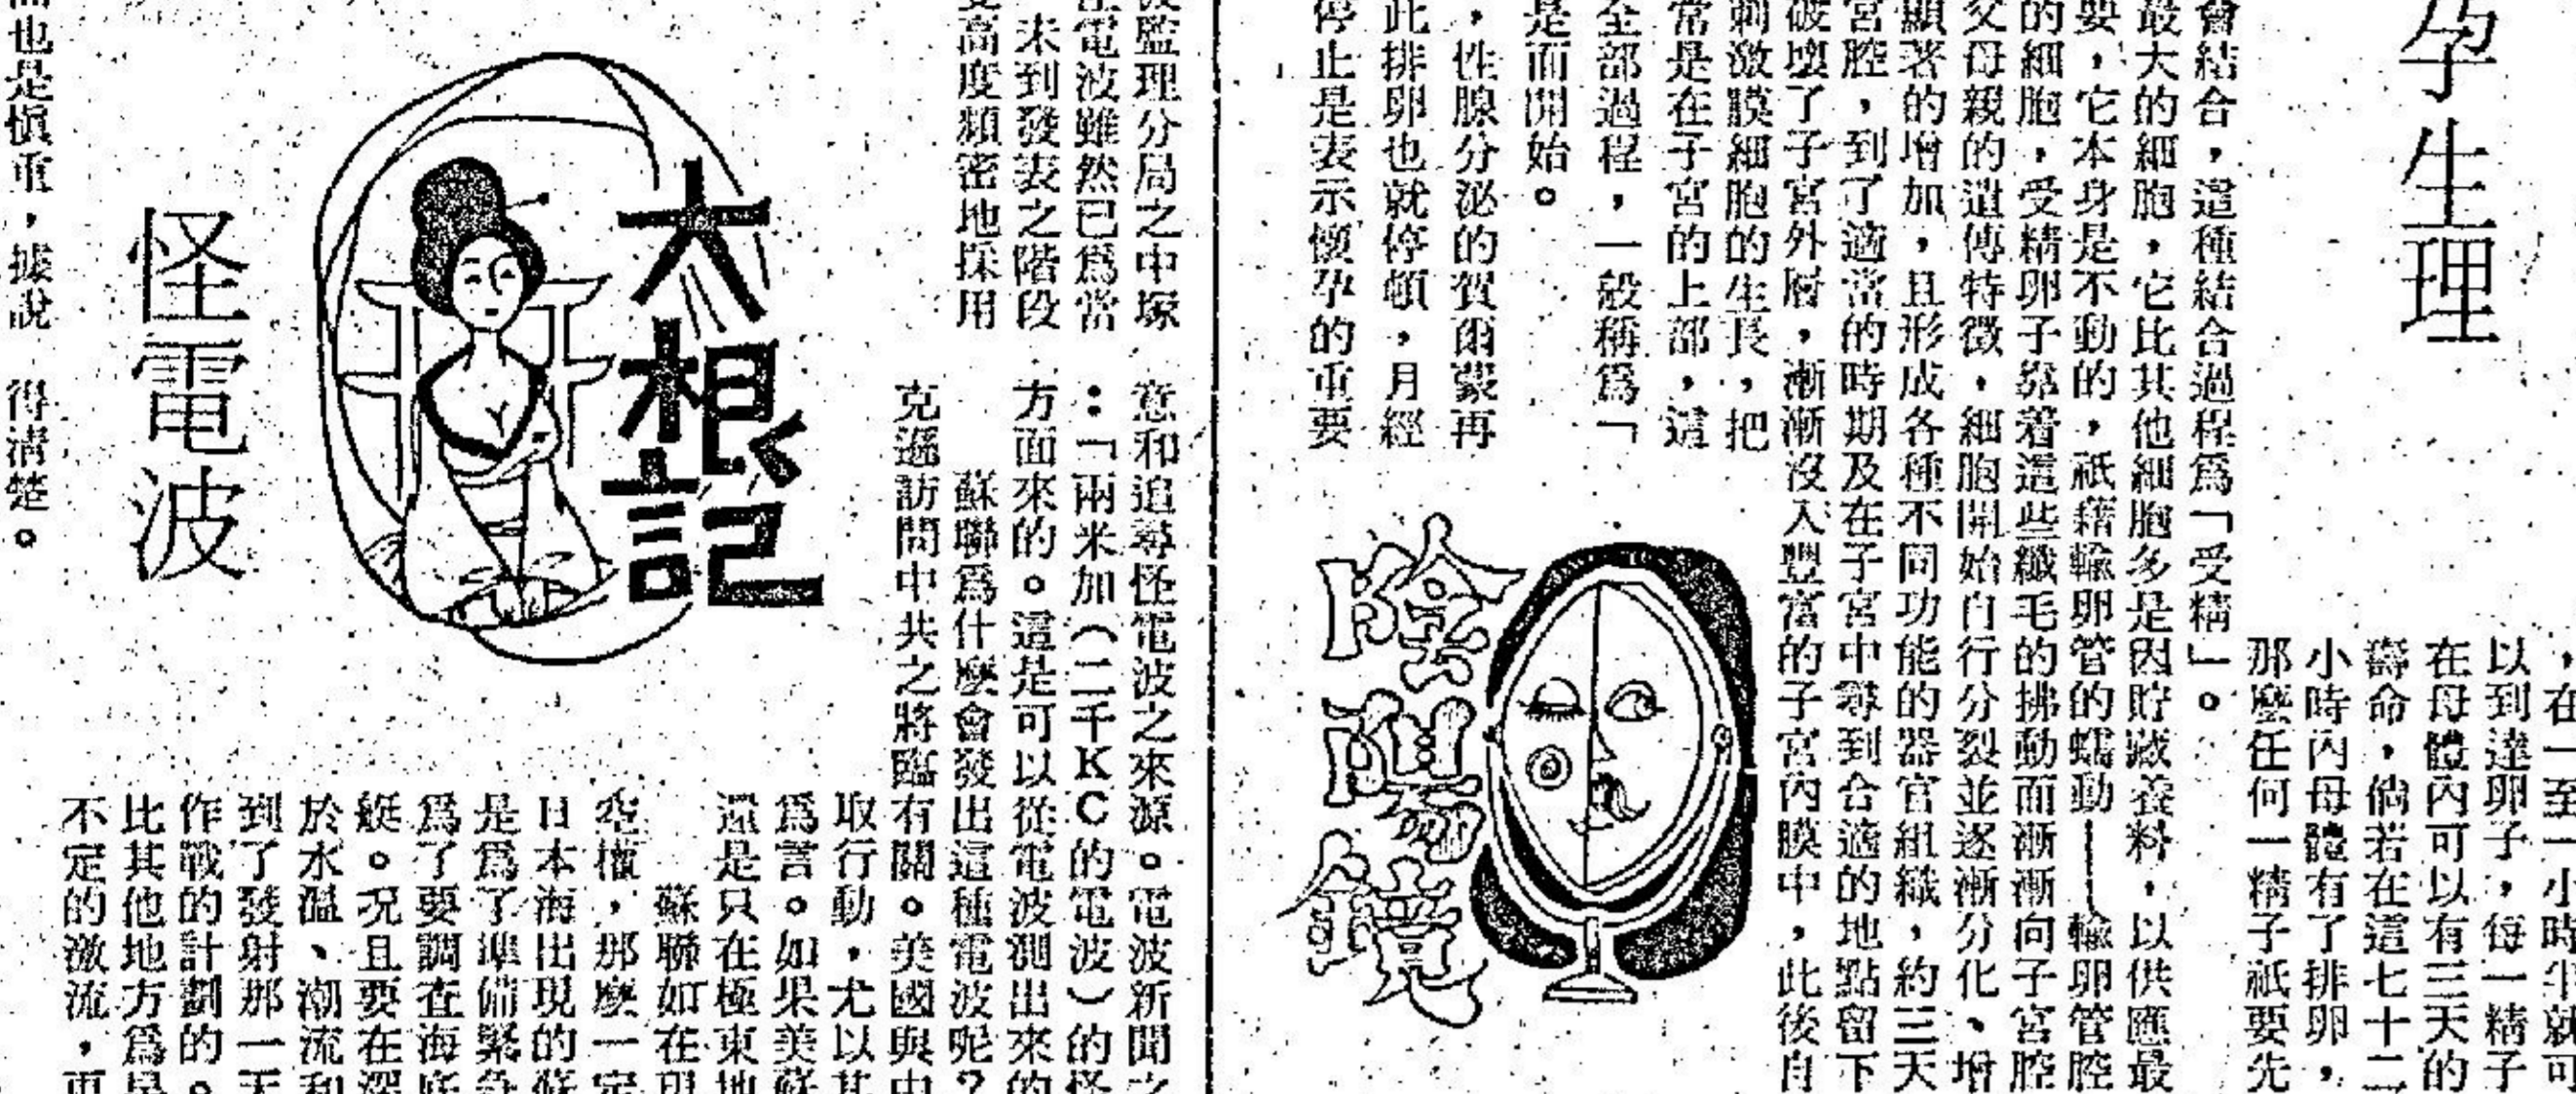 孕生理
，在一至一小時半就可
以到達卵子，每一精子
在母體內可以有三天的
壽命，倘若在這七十二
小時內母體有了排卵，
那麼任何一精子祇要先
會結合，這種結合過程爲「受精」。
最大的細胞，它比其他細胞多是因貯藏養料，以供應最
要，它本身是不動的，祇藉輸卵管的蠕動——輸卵管腔
的細胞，受精卵子靠着這些纖毛的拂動而漸漸向子宮腔
父母親的遺傳特徵，細胞開始自行分裂並逐漸分化、增
顯著的增加，且形成各種不同功能的器官組織，約三天
宮腔，到了適當的時期及在子宮中尋到合適的地點留下
破壞了子宮外層，漸漸沒入豐富的子宮內膜中，此後自
刺激膜細胞的生長，把
常是在子宮的上部，這
全部過程，一般稱爲「
是面開始。
，性腺分泌的賀爾蒙再
此排卵也就停頓，月經
停止是表示懷孕的重要
陰陽鏡
波監理分局之中塚
電波雖然已爲當
未到發表之階段
更高度頻密地採用
意和追尋怪電波之來源。電波新聞之
：「兩米加（二千KC的電波）的怪
方面來的。這是可以從電波測出來的
蘇聯爲什麼會發出這種電波呢？
克遜訪問中共之將臨有關。美國與中
大根記
怪電波
取行動，尤以其
爲言。如果美蘇
還是只在極東地
蘇聯如在
空權，那麼一定
日本海出現的蘇
是爲了準備緊急
爲了要調查海底
艇。況且要在深
於水溫、潮流和
到了發射那一天
作戰的計劃的。
比其他地方爲
不定的激流，更
也是愼重，據說 得清楚。